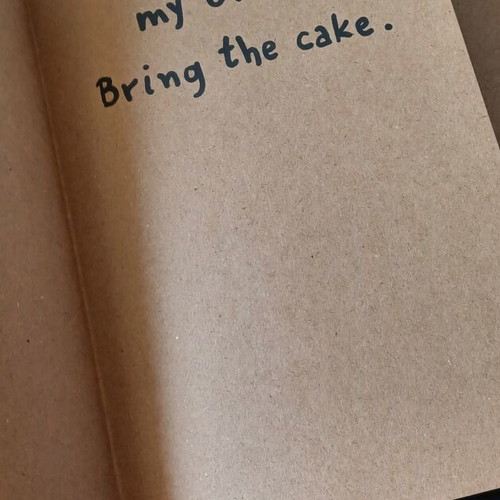 my
Bring the cake.